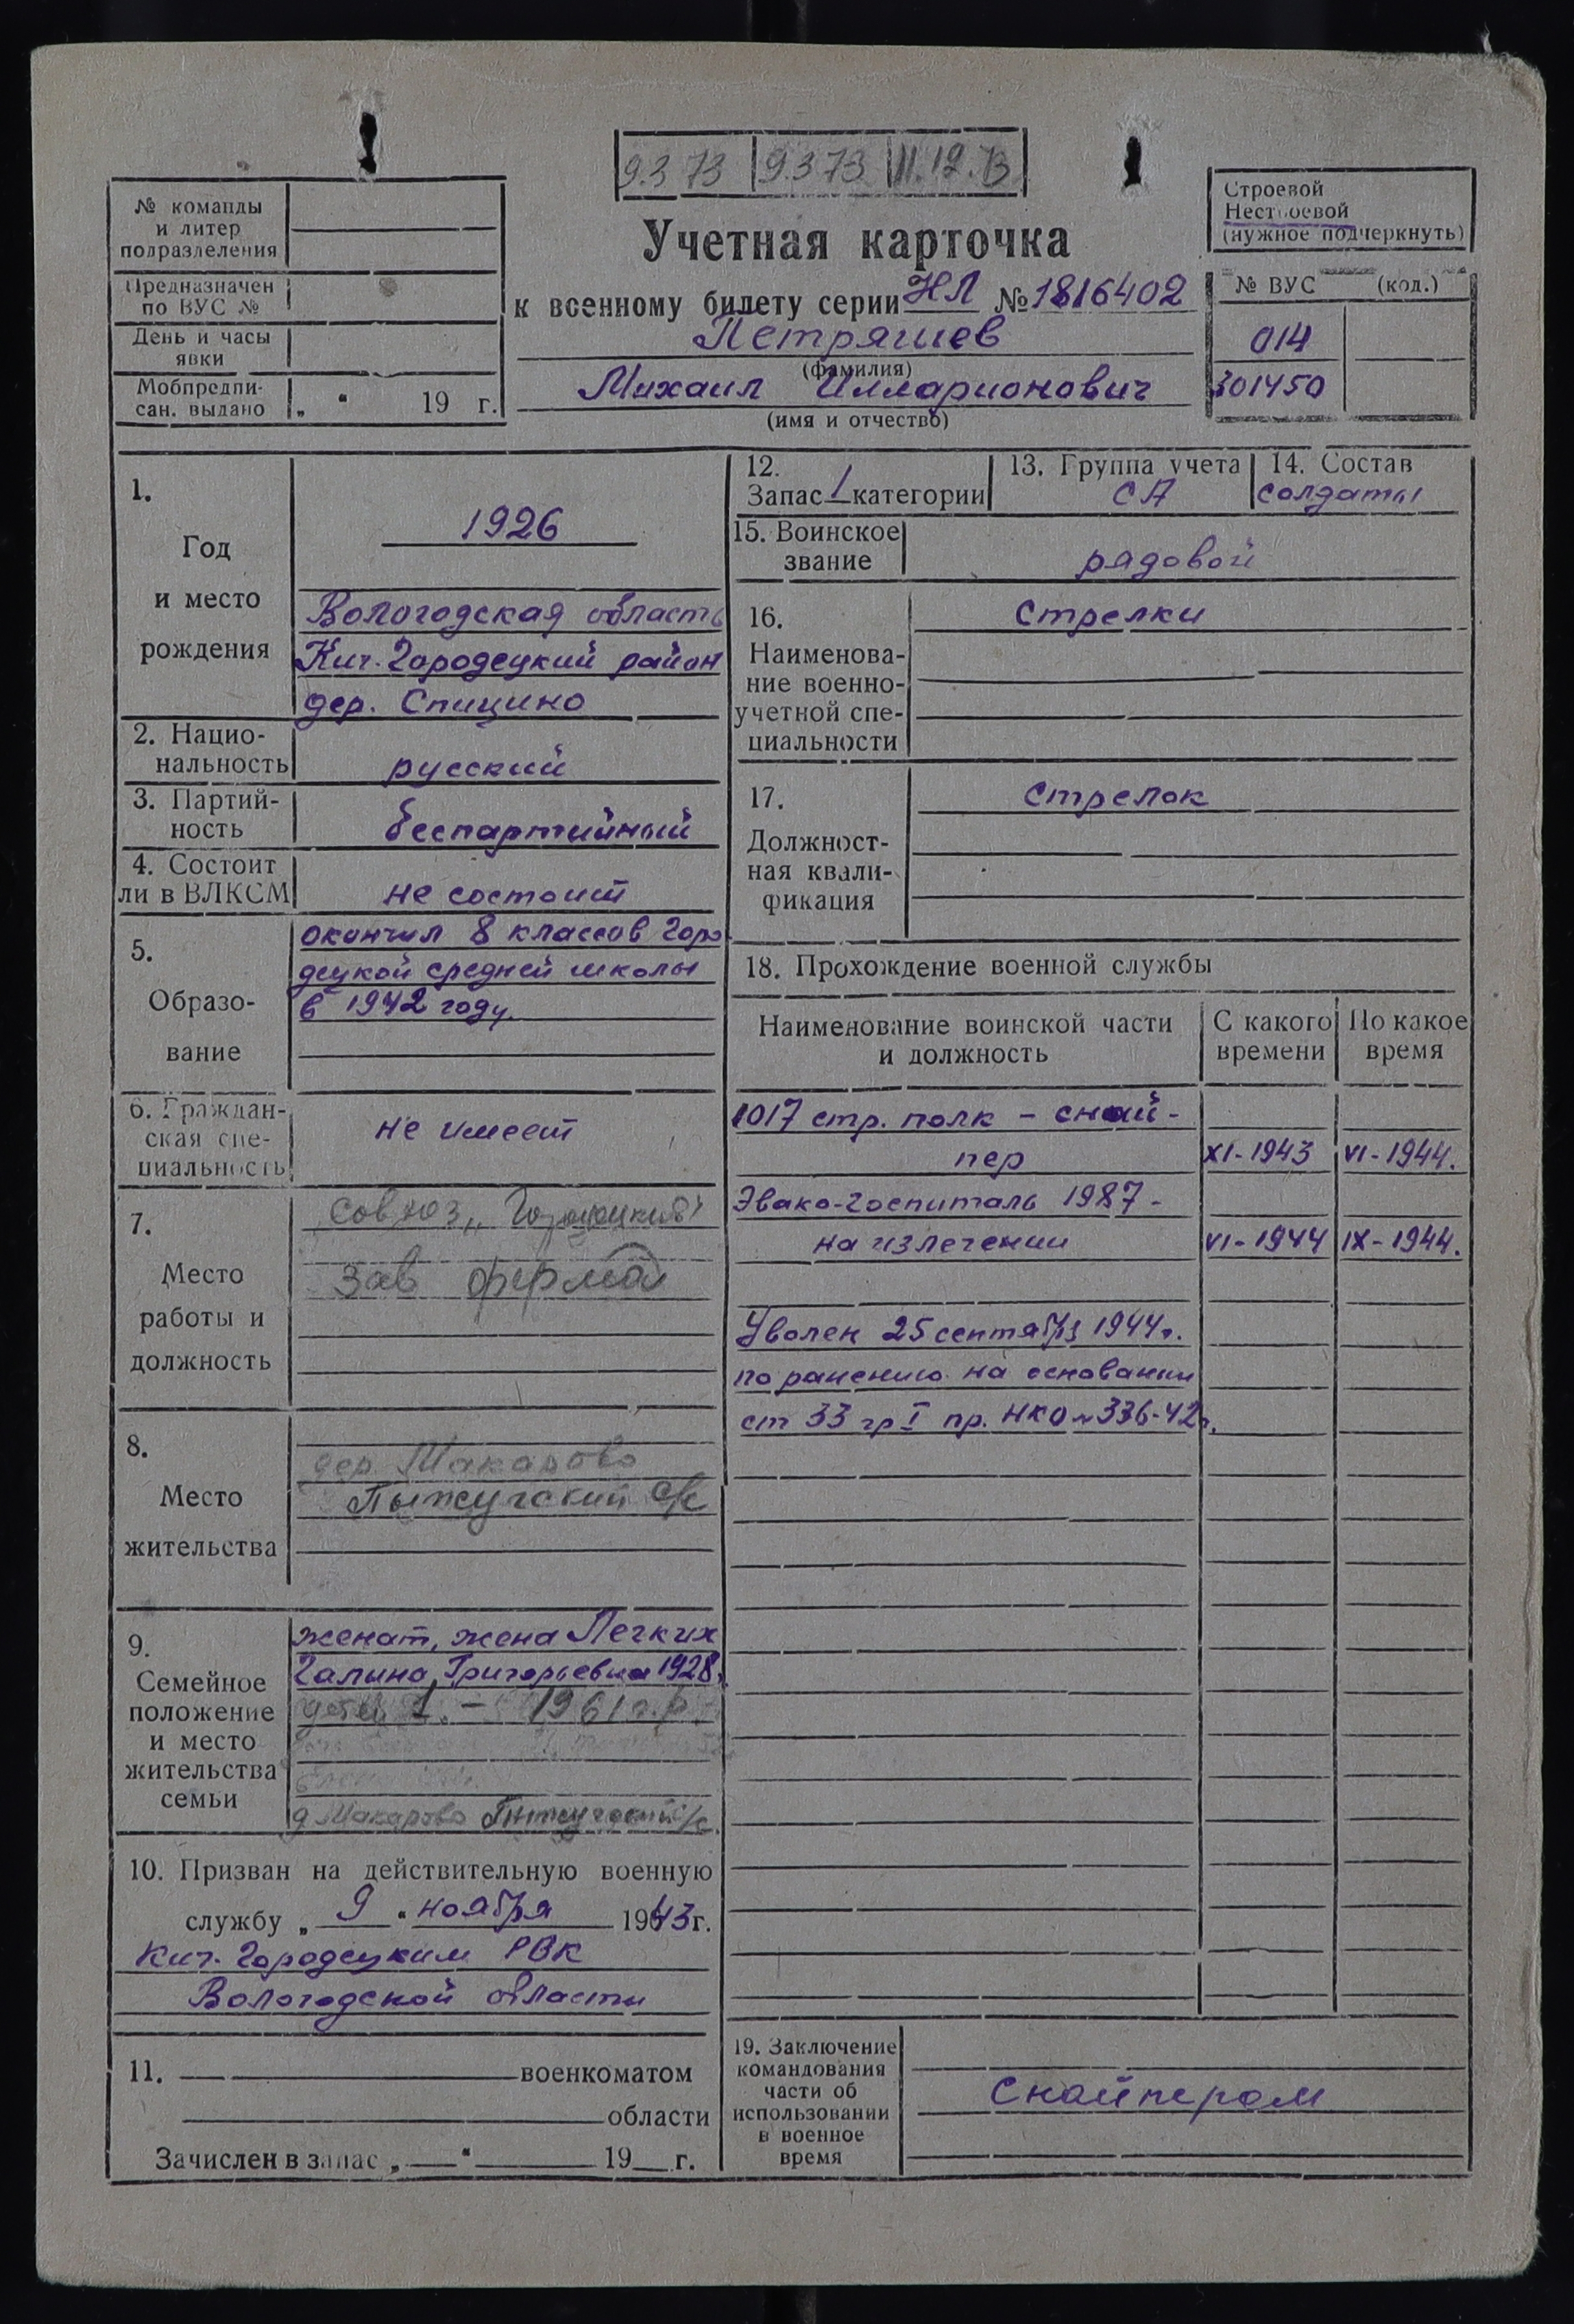 9.3 73 9.3 73 11.12.73
№ команды
и литер
подразделения
Предназначен
по ВУС №
День и часы
явки
Мобпредпи-
сан. выдано „ “ 19 г.
Учетная карточка
к военному билету серии НЛ № 1816402
Петряшев
(фамилия)
Михаил Илларионович
(имя и отчество)
Строевой
Нестроевой
(нужное подчеркнуть)
№ ВУС (код.)
014
301450
1.
Год
и место
рождения
1926
Вологодская область
Кич-Городецкий район
дер. Спицино
2. Нацио-
нальность
русский
3. Партий-
ность
беспартийный
4. Состоит
ли в ВЛКСМ
не состоит
5.
Образо-
вание
окончил 8 классов Горо-
децкой средней школы
в 1942 году.
6. Граждан-
ская спе-
циальность
не имеет
7.
Место
работы и
должность
совхоз „Городецкий“
Зав фермой
8.
Место
жительства
дер Макарово
Пыжугский с/с
9.
Семейное
положение
и место
жительства
семьи
женат, жена Легких
Галина Григорьевна 1928.
детей 1. – 1961 г.р.
д Макарово Пыжугский с/с.
10. Призван на действительную военную
службу „ 9 “ ноября 1943 г.
Кич-Городецким РВК
Вологодской области
11. военкоматом
области
Зачислен в запас „ “ 19 г.
12.
Запас 1 категории
13. Группа учета
СА
14. Состав
солдаты
15. Воинское
звание
рядовой
16.
Наименова-
ние военно-
учетной спе-
циальности
Стрелки
17.
Должност-
ная квали-
фикация
Стрелок
18. Прохождение военной службы
Наименование воинской части
и должность
С какого
времени
По какое
время
1017 стр. полк – снай-
пер XI-1943 VI-1944.
Эвако-госпиталь 1987 -
на излечении VI-1944 IX-1944.
Уволен 25 сентября 1944 г.
по ранению на основании
ст 33 гр I пр. НКО № 336-42 г.
19. Заключение
командования
части об
использовании
в военное
время
Снайпером